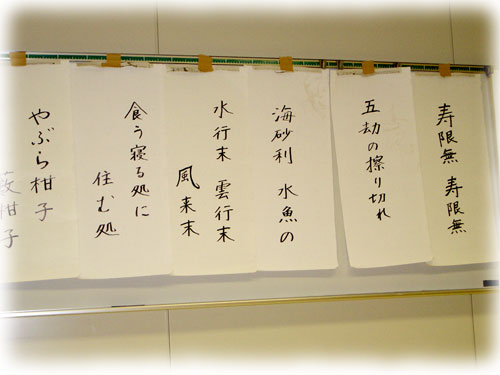 寿限無 寿限無
五劫の擦り切れ
海砂利 水魚の
水行末 雲行末
風来末
食う寝る処に
住む処
やぶら柑子